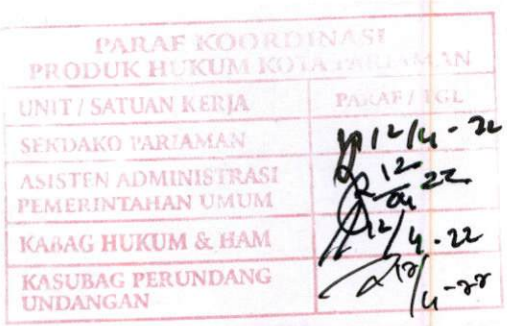 PARAF KOORDINASI
PRODUK HUKUM KOTA PARIAMAN
UNIT / SATUAN KERJA PARAF / TGL
SEKDAKO PARIAMAN 12/4-22
ASISTEN ADMINISTRASI
PEMERINTAHAN UMUM 12/04 22
KABAG HUKUM & HAM 12/4-22
KASUBAG PERUNDANG
UNDANGAN 12/4-22